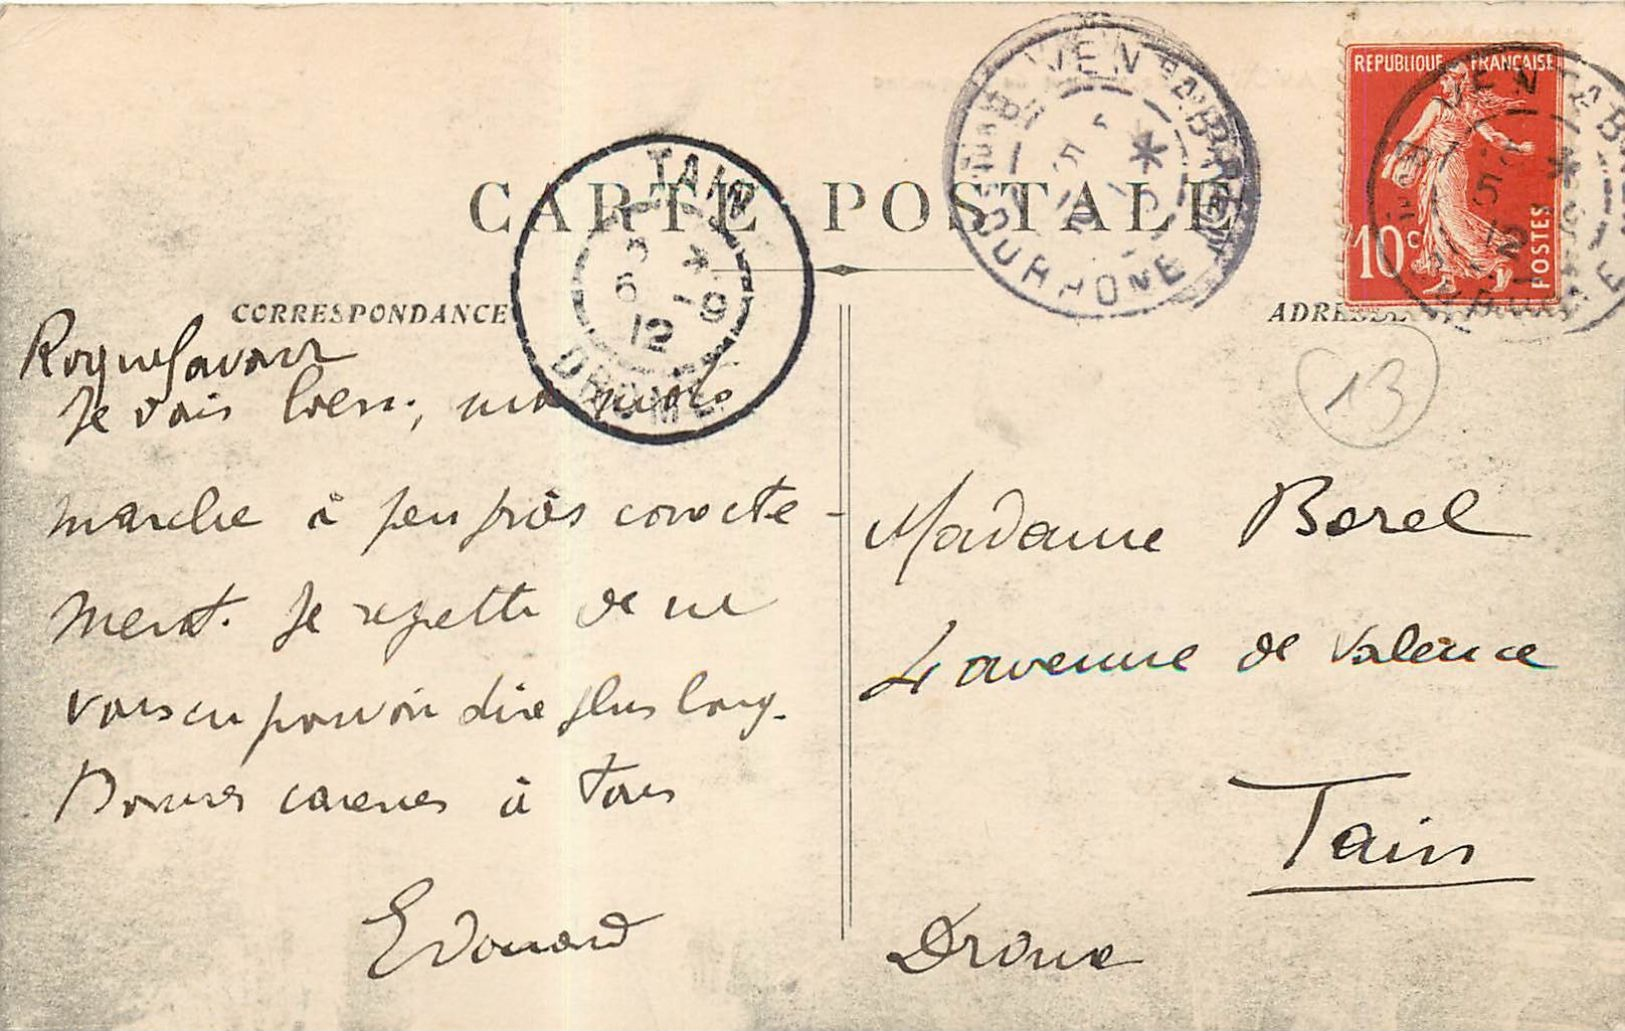 CARTE POSTALE
CORRESPONDANCE
Roquefavour
Je vais bien, ma moto
marche à peu près correcte-
ment. Je regrette de ne
vous en pouvoir dire plus long.
Bonnes caresses à tous
Edouard
TAIN
5
6
12
*
19
DROME
VENTABREN
5
12
*
BCHES DU RHONE
REPUBLIQUE FRANÇAISE
10c
POSTES
VENTABREN
5
12
*
13
Madame Borel
4 avenue de Valence
Tain
Drome